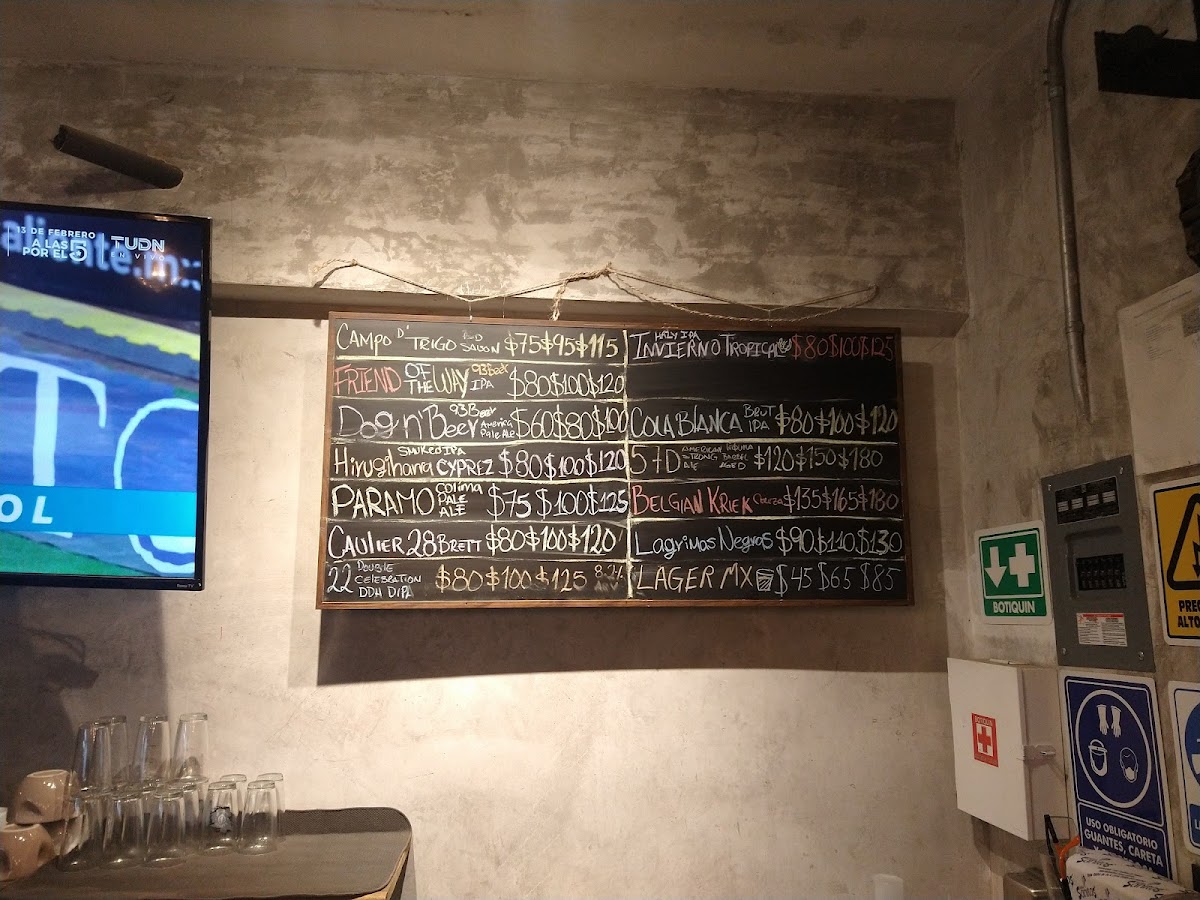 13 DE FEBRERO
A LAS 5
POR EL 5
TUDN
EN VIVO
alinte.mx
TO
OL
CAMPO D' TRIGO SAISON $75 $95 $115
FRIEND OF THE WAY 93 Beer IPA $80 $100 $120
Dog n' Beer 93 Beer America Pale Ale $60 $80 $100
Hirugihana SMOKED IPA CYPREZ $80 $100 $120
PARAMO COLIMA PALE ALE $75 $100 $125
CAULIER 28 BRETT $80 $100 $120
22 DOUBLE CELEBRATION DDH DIPA $80 $100 $125
INVIERNO TROPICAL HAZY IPA $80 $100 $125
COLA BLANCA BRUT IPA $80 $100 $120
57D AMERICAN STRONG ALE BARREL AGED $120 $150 $180
BELGIAN KRIEK $135 $165 $180
Lagrimas Negras $90 $110 $130
LAGER MX $45 $65 $85
BOTIQUIN
BOTIQUIN
PREC
ALTO
USO OBLIGATORIO
GUANTES, CARETA